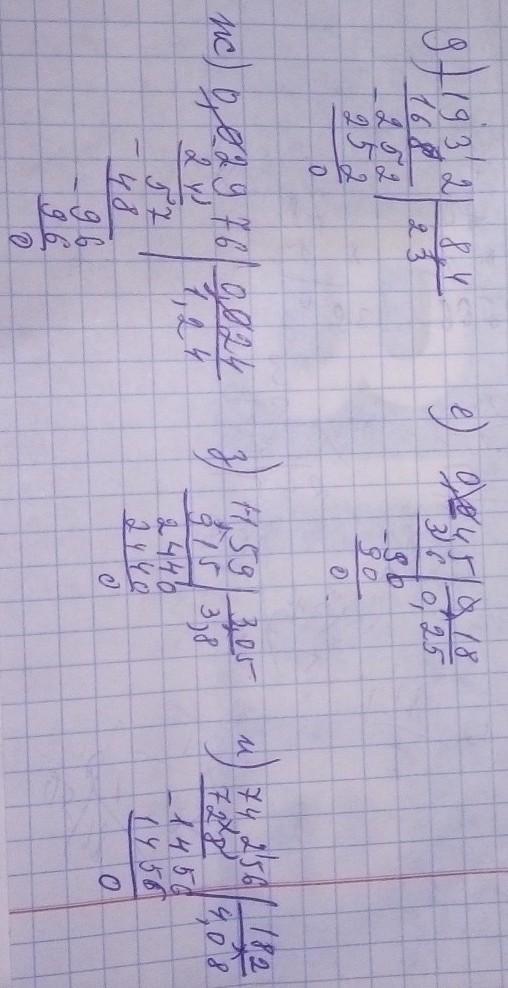 д) 193,2 | 8,4
168 | 23
-252
252
0
е) 0,045 | 0,18
36 | 0,25
-90
90
0
ж) 0,02976 | 0,024
24 | 1,24
-57
48
-96
96
0
з) 11,59 | 3,05
915 | 3,8
2440
2440
0
и) 74,256 | 182
728 | 4,08
-1456
1456
0